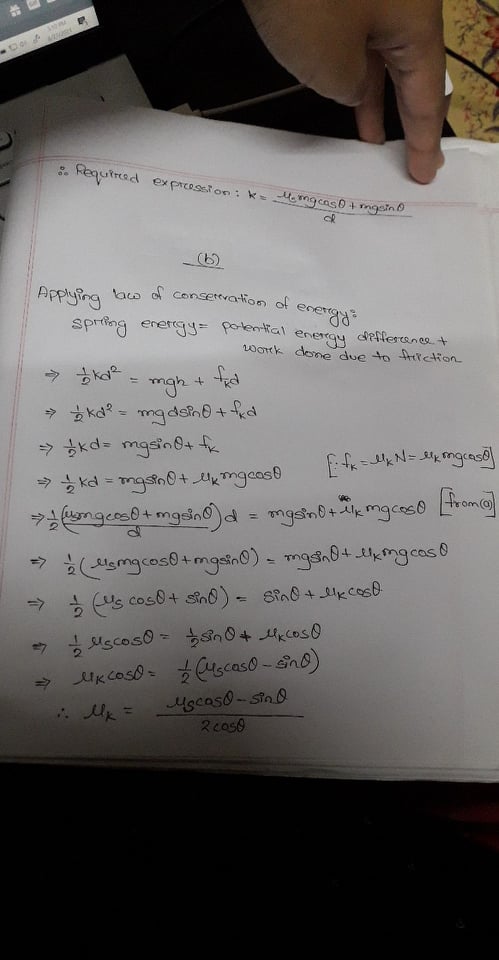 ∴ Required expression: k = (μsmgcosθ + mgsinθ)/d
(b)
Applying law of conservation of energy:
spring energy = potential energy difference +
work done due to friction
⇒ ½kd² = mgh + fkd
⇒ ½kd² = mgdsinθ + fkd
⇒ ½kd = mgsinθ + fk
⇒ ½kd = mgsinθ + μkmgcosθ [∵ fk = μkN = μkmgcosθ]
⇒ ½((μsmgcosθ + mgsinθ)/d)d = mgsinθ + μkmgcosθ [from(a)]
⇒ ½(μsmgcosθ + mgsinθ) = mgsinθ + μkmgcosθ
⇒ ½(μscosθ + sinθ) = sinθ + μkcosθ
⇒ ½μscosθ = ½sinθ + μkcosθ
⇒ μkcosθ = ½(μscosθ - sinθ)
∴ μk = (μscosθ - sinθ)/2cosθ